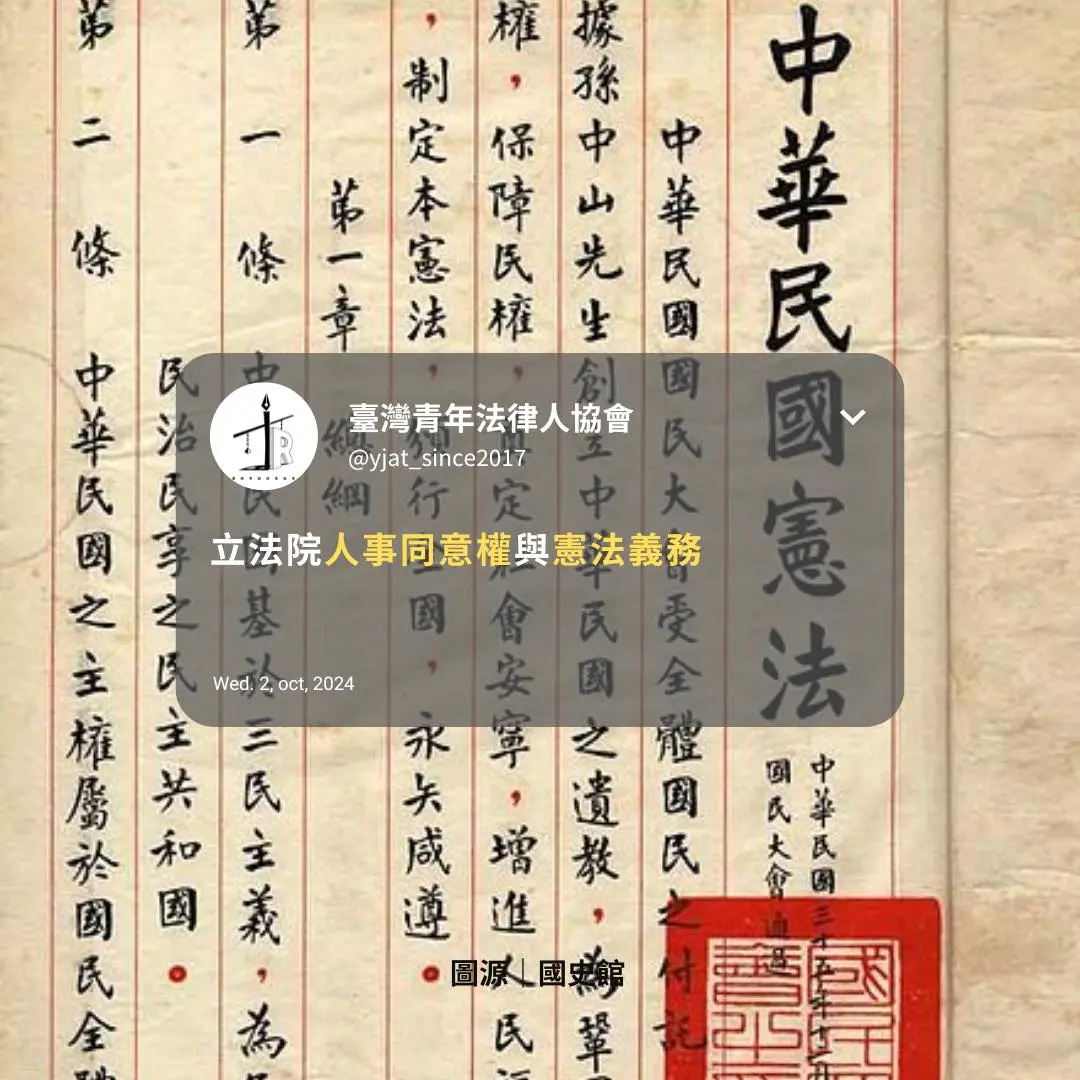 中華民國憲法
中華民國三十五年十二月
國民大會通過
中華民國國民大會受全體國民之付託
據孫中山先生創立中華民國之遺教,為鞏
權,保障民權,奠定社會安寧,增進人民
,制定本憲法,頒行全國,永矢咸遵。
第一章 總綱
第一條 中華民國基於三民主義,為
民治民享之民主共和國。
第二條 中華民國之主權屬於國民全體
臺灣青年法律人協會
@yjat_since2017
立法院人事同意權與憲法義務
Wed. 2, oct, 2024
圖源｜國史館